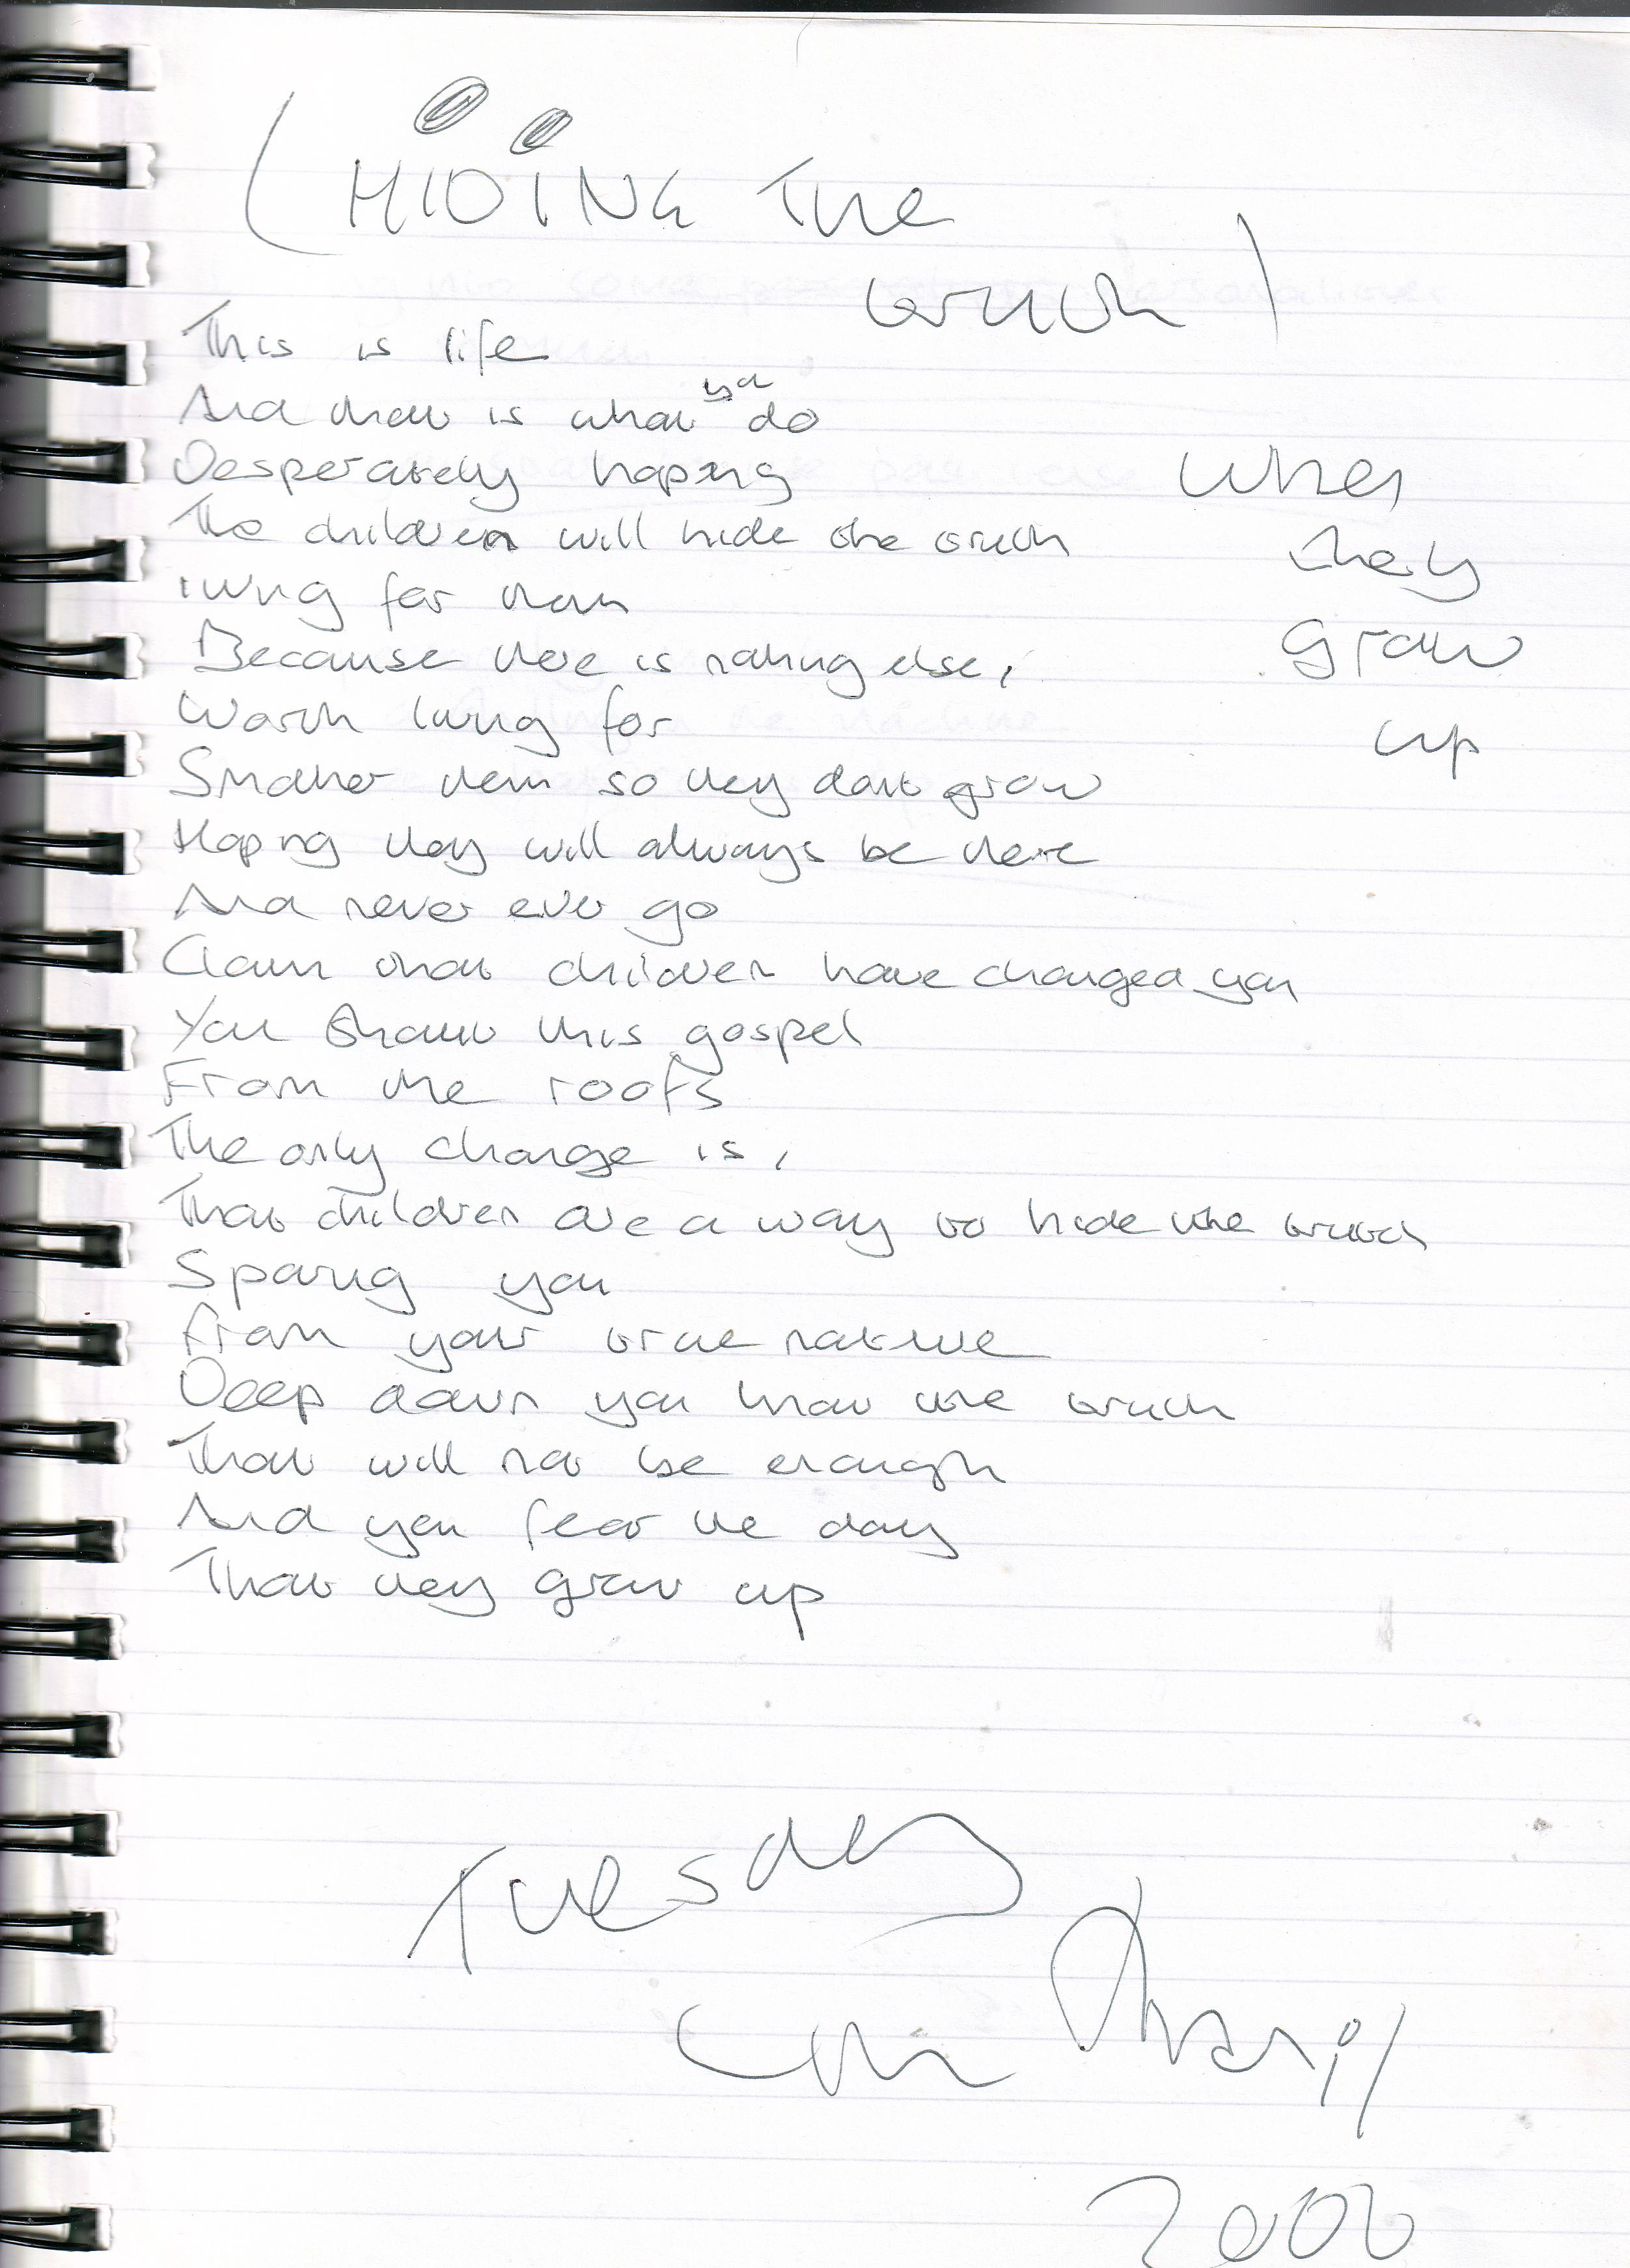 (HIDING THE
truth)
This is life
And that is what you do
Desperately hoping
The children will hide the truth
living for them
Because there is nothing else,
Worth living for
Smother them so they dont grow
Hoping they will always be there
And never ever go
Claim that children have changed you
You shout this gospel
From the roofs
The only change is,
That children are a way to hide the truth
Sparing you
from your true nature
Deep down you know the truth
That will not be enough
And you fear the day
That they grow up
When
they
grow
up
Tuesday
April